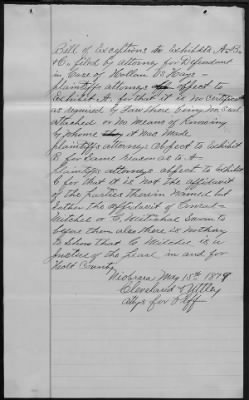 Bill of Exceptions to Exhibits A. B.
& C. filed by attorney for Defendant
in Case of Hollow vs Hays —
plaintiffs attorneys object to
Exhibit A. for that it is no Certificate
as required by Law there being no Seal
attached or no Means of Knowing
by whome it was Made
plaintiffs attorneys object to Exhibit
B for Same reason as to A
plaintiffs attorneys object to Exhibit
C for that it is not the affidavit
of the Parties therein named but
rather the affidavit of
Mitchel or C. Mitchel Sworn to
before them also there is nothing
to Show that C Mitchel is a
Justice of the peace in and for
Holt County
Niobrara May 15th 1879
Cleveland & Uttley
Attys for Plff